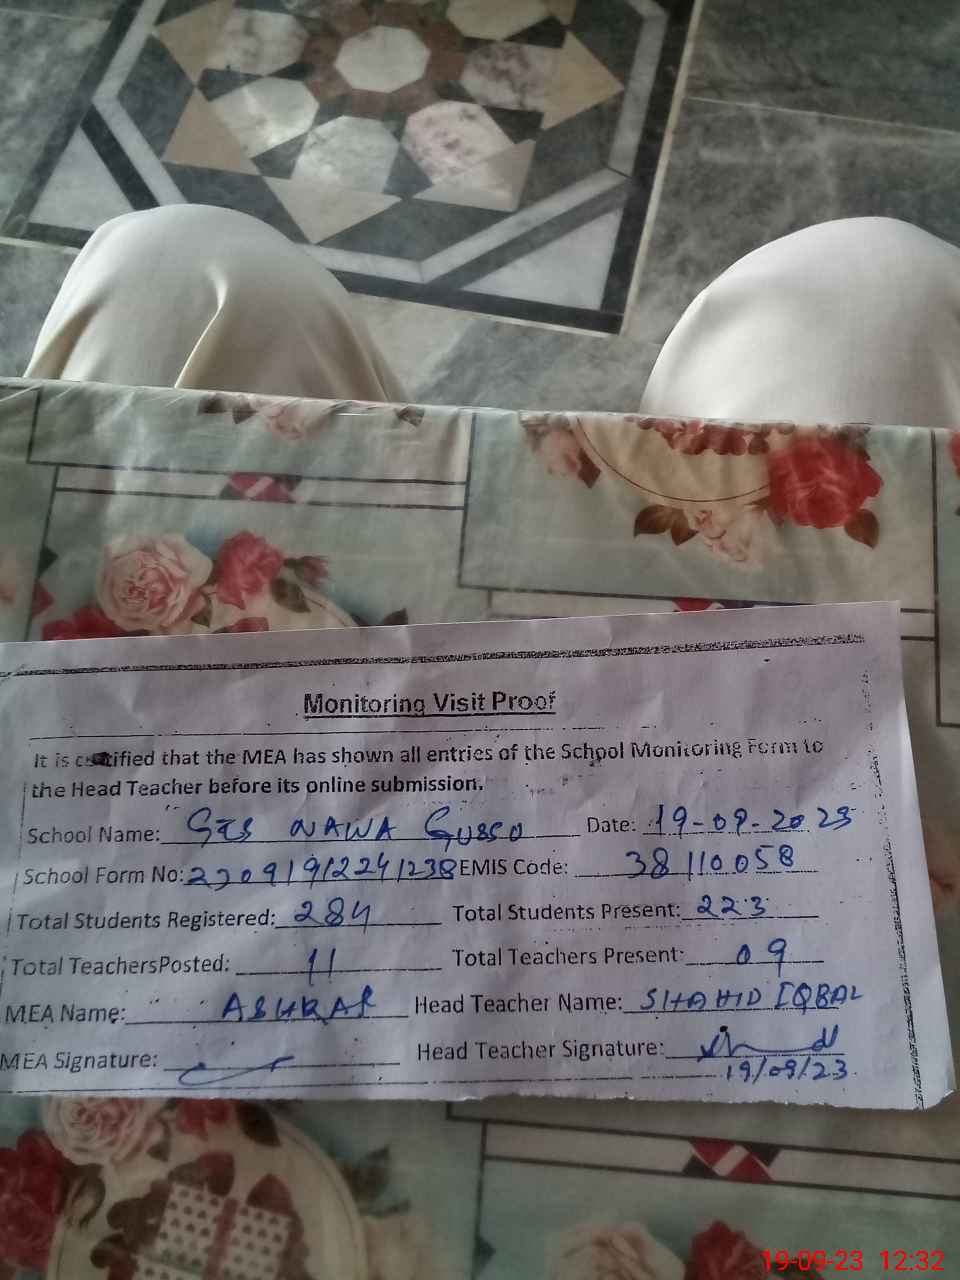 Monitoring Visit Proof
It is certified that the MEA has shown all entries of the School Monitoring Form to
the Head Teacher before its online submission.
School Name: GES NAWA GUSSO Date: 19-09-2023
School Form No: 23091912241238 EMIS Code: 38110058
Total Students Registered: 284 Total Students Present: 223
Total TeachersPosted: 11 Total Teachers Present: 09
MEA Name: ASHRAF Head Teacher Name: SHAHID IQBAL
MEA Signature: Head Teacher Signature:
19/09/23
19-09-23 12:32